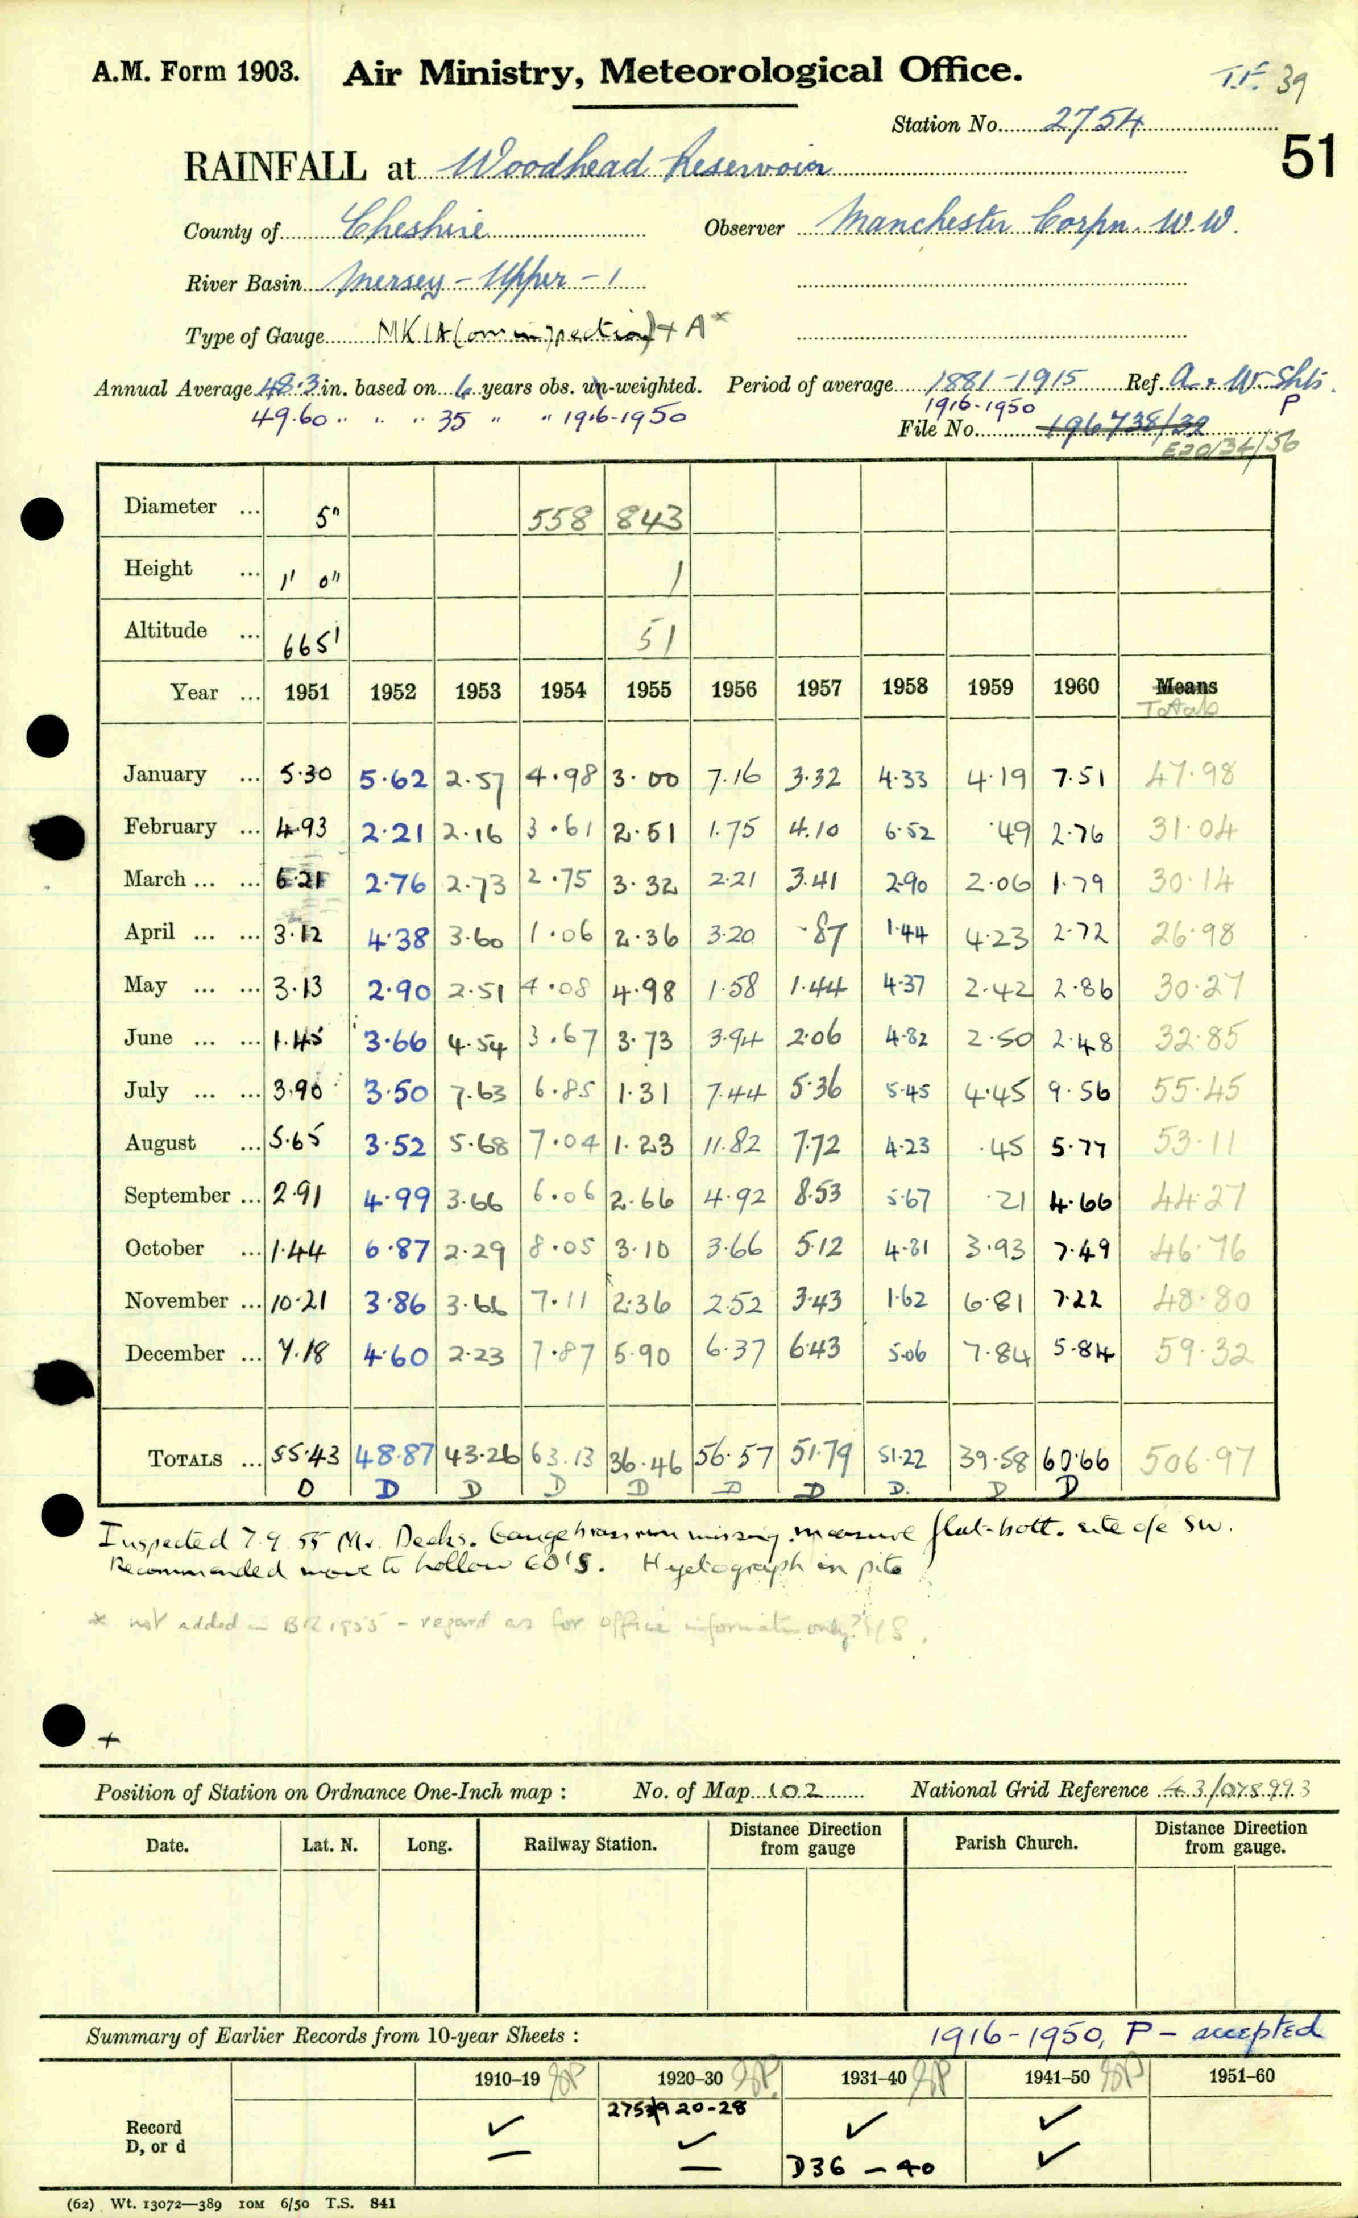 A.M. Form 1903. Air Ministry, Meteorological Office. 39
Station No. 2754
51
RAINFALL at Woodhead Reservoir
County of Cheshire Observer Manchester Corpn. W.W.
River Basin Mersey - Upper - 1
Type of Gauge MK IA (on inspection) + A*
Annual Average 48.3 in. based on 6 years obs. un-weighted. Period of average 1881-1915 Ref. A. & W. Shts.
49.60 " " " 35 " " 1916-1950 1916-1950 P
File No. 196738/32
E20/34/56
Diameter ... 5" 558 843
Height ... 1' 0" 1
Altitude ... 665' 51
Year ... 1951 1952 1953 1954 1955 1956 1957 1958 1959 1960 Means
Totals
January ... 5.30 5.62 2.57 4.98 3.00 7.16 3.32 4.33 4.19 7.51 47.98
February ... 4.93 2.21 2.16 3.61 2.51 1.75 4.10 6.52 .49 2.76 31.04
March ... ... 6.21 2.76 2.73 2.75 3.32 2.21 3.41 2.90 2.06 1.79 30.14
April ... ... 3.12 4.38 3.60 1.06 2.36 3.20 .87 1.44 4.23 2.72 26.98
May ... ... 3.13 2.90 2.51 4.08 4.98 1.58 1.44 4.37 2.42 2.86 30.27
June ... ... 1.45 3.66 4.54 3.67 3.73 3.94 2.06 4.82 2.50 2.48 32.85
July ... ... 3.90 3.50 7.63 6.85 1.31 7.44 5.36 5.45 4.45 9.56 55.45
August ... 5.65 3.52 5.68 7.04 1.23 11.82 7.72 4.23 .45 5.77 53.11
September ... 2.91 4.99 3.66 6.06 2.66 4.92 8.53 5.67 .21 4.66 44.27
October ... 1.44 6.87 2.29 8.05 3.10 3.66 5.12 4.81 3.93 7.49 46.76
November ... 10.21 3.86 3.66 7.11 2.36 2.52 3.43 1.62 6.81 7.22 48.80
December ... 7.18 4.60 2.23 7.87 5.90 6.37 6.43 5.06 7.84 5.84 59.32
TOTALS ... 55.43 48.87 43.26 63.13 36.46 56.57 51.79 51.22 39.58 60.66 506.97
D D D D D D D D. D D
Inspected 7.9.55 Mr. Deeks. Gauge brass rim missing. measure flat-bott. site o/e SW.
Recommended move to hollow 60'S. Hyetograph in pits
* not added in BR 1955 - regard as for office information only?
+
Position of Station on Ordnance One-Inch map : No. of Map 102 National Grid Reference 43/078993
Date. Lat. N. Long. Railway Station. Distance Direction from gauge Parish Church. Distance Direction from gauge.
Summary of Earlier Records from 10-year Sheets : 1916-1950, P - accepted
1910-19 1920-30 1931-40 1941-50 1951-60
Record ✓ 20-28 ✓ ✓ ✓
D, or d — — D36 - 40 ✓
(62) Wt. 13072—389 10M 6/50 T.S. 841